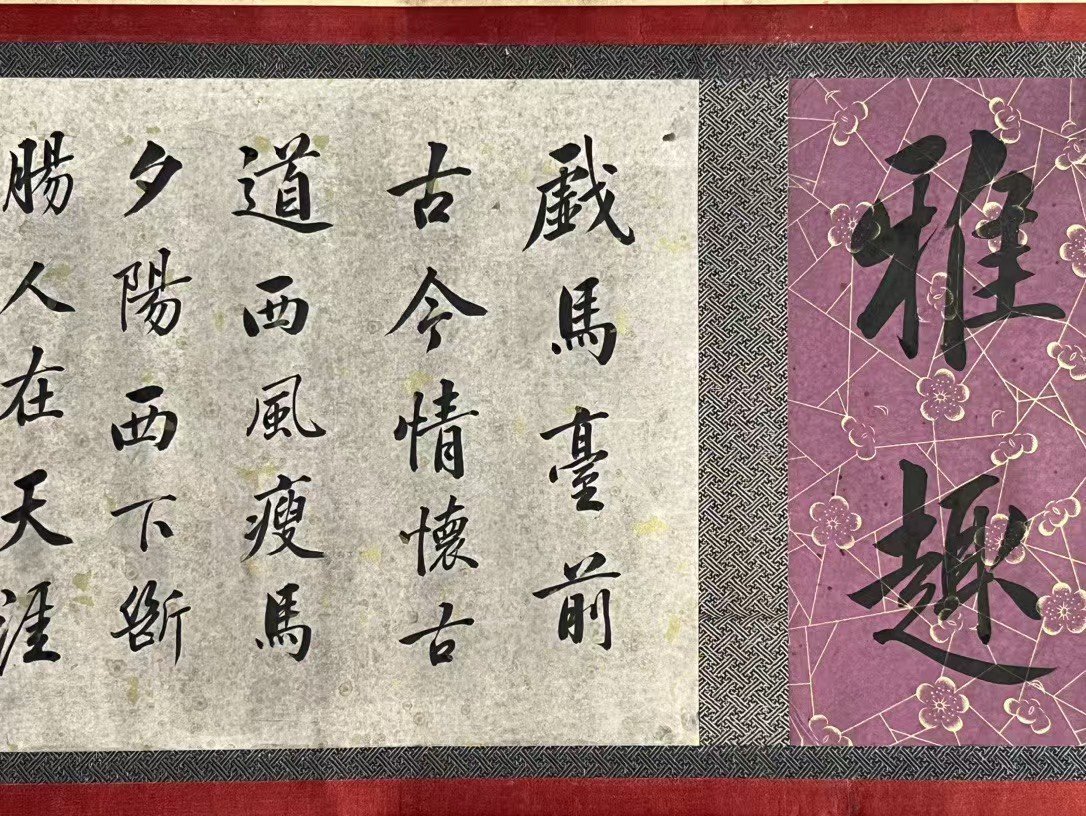 雅趣
戲馬臺前
古今情懷古
道西風瘦馬
夕陽西下斷
腸人在天涯